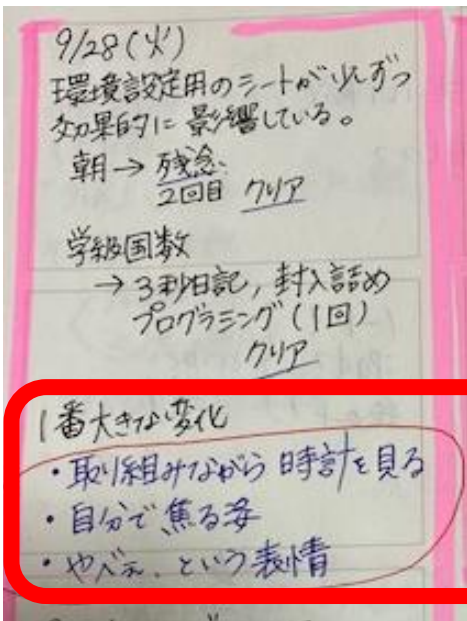 9/28(火)
環境設定用のシートが少しずつ
効果的に影響している。
朝→残念、
2回目 クリア
学級国数
→3秒日記,封入詰め
プログラミング(1回)
クリア
1番大きな変化
・取り組みながら時計を見る
・自分で焦る姿
・やべぇ、という表情